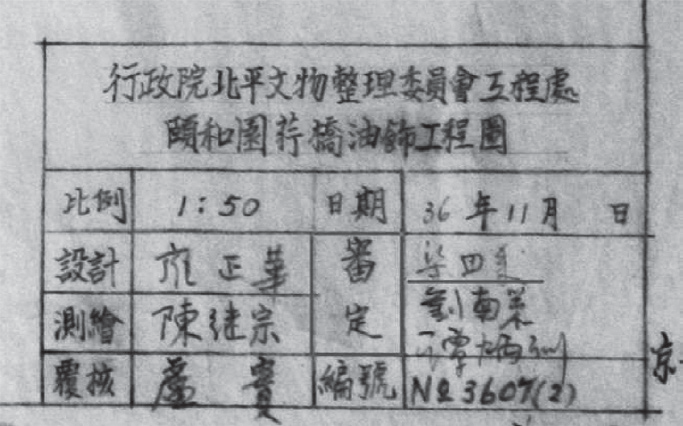 行政院北平文物整理委員會工程處
頤和園荇橋油飾工程圖
比例 1:50 日期 36年11月 日
設計 雍正華 審定
劉南策
測繪 陳继宗
覆核 盧實 編號 № 3607(2)
京